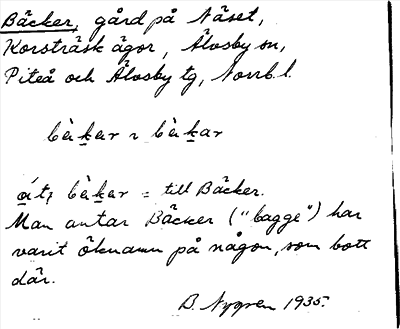 Bäcker, gård på Näset,
Korsträsk ägor, Älvsby sn,
Piteå och Älvsby tg, Norrb. l.
bèkar ~ bèkar
át, bèkar = till Bäcker.
Man antar Bäcker ("bagge") har
varit öknamn på någon, som bott
där.
B. Nygren 1935.